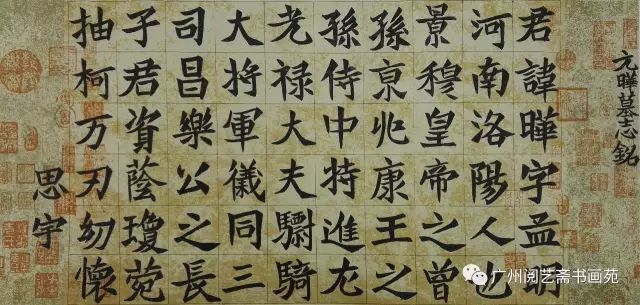 元曄墓志銘
君諱曄字益明
河南洛陽人也
景穆皇帝之曾
孫亰兆康王之
孫侍中特進左
光禄大夫驃騎
大將軍儀同三
司昌樂公之長
子君資蔭瓊苑
抽柯万刃幼懷
思宇
广州阅艺斋书画苑